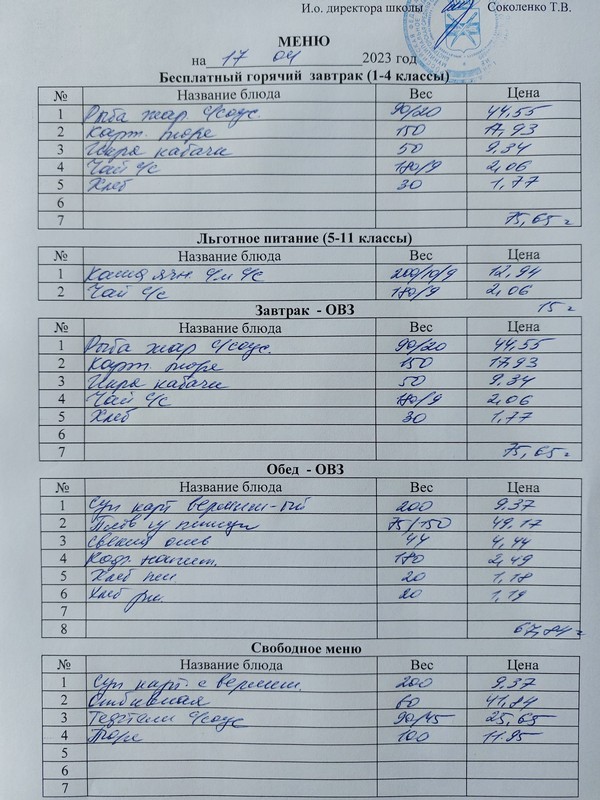 И.о. директора школы Соколенко Т.В.
МЕНЮ
на 17 04 2023 год
Бесплатный горячий завтрак (1-4 классы)
№ Название блюда Вес Цена
1 Рыба жар с/соус. 90/20 44,55
2 Карт. пюре 150 17,93
3 Икра кабачк 50 9.34
4 Чай с/с 180/9 2,06
5 Хлеб 30 1,77
6
7 75,65
Льготное питание (5-11 классы)
№ Название блюда Вес Цена
1 Каша ячн с/м с/с 200/10/9 12,94
2 Чай с/с 180/9 2,06
15
Завтрак - ОВЗ
№ Название блюда Вес Цена
1 Рыба жар с/соус. 90/20 44,55
2 Карт. пюре 150 17,93
3 Икра кабачк 50 9.34
4 Чай с/с 180/9 2,06
5 Хлеб 30 1,77
6
7 75,65
Обед - ОВЗ
№ Название блюда Вес Цена
1 Суп карт вермиш-ый 200 9.37
2 Плов птицы 75/150 49.17
3 44 4,44
4 180 2,49
5 Хлеб пш. 20 1,18
6 Хлеб рж. 20 1,19
7
8 67,84
Свободное меню
№ Название блюда Вес Цена
1 Суп карт. с вермиш. 200 9.37
2 Отбивная 60 41,84
3 Тефтели с/соус 90/45 25,65
4 Пюре 100 11.95
5
6
7